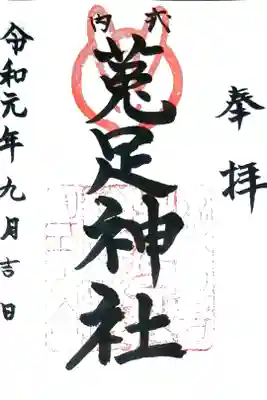 奉拝
式内
菟足神社
令和元年九月吉日